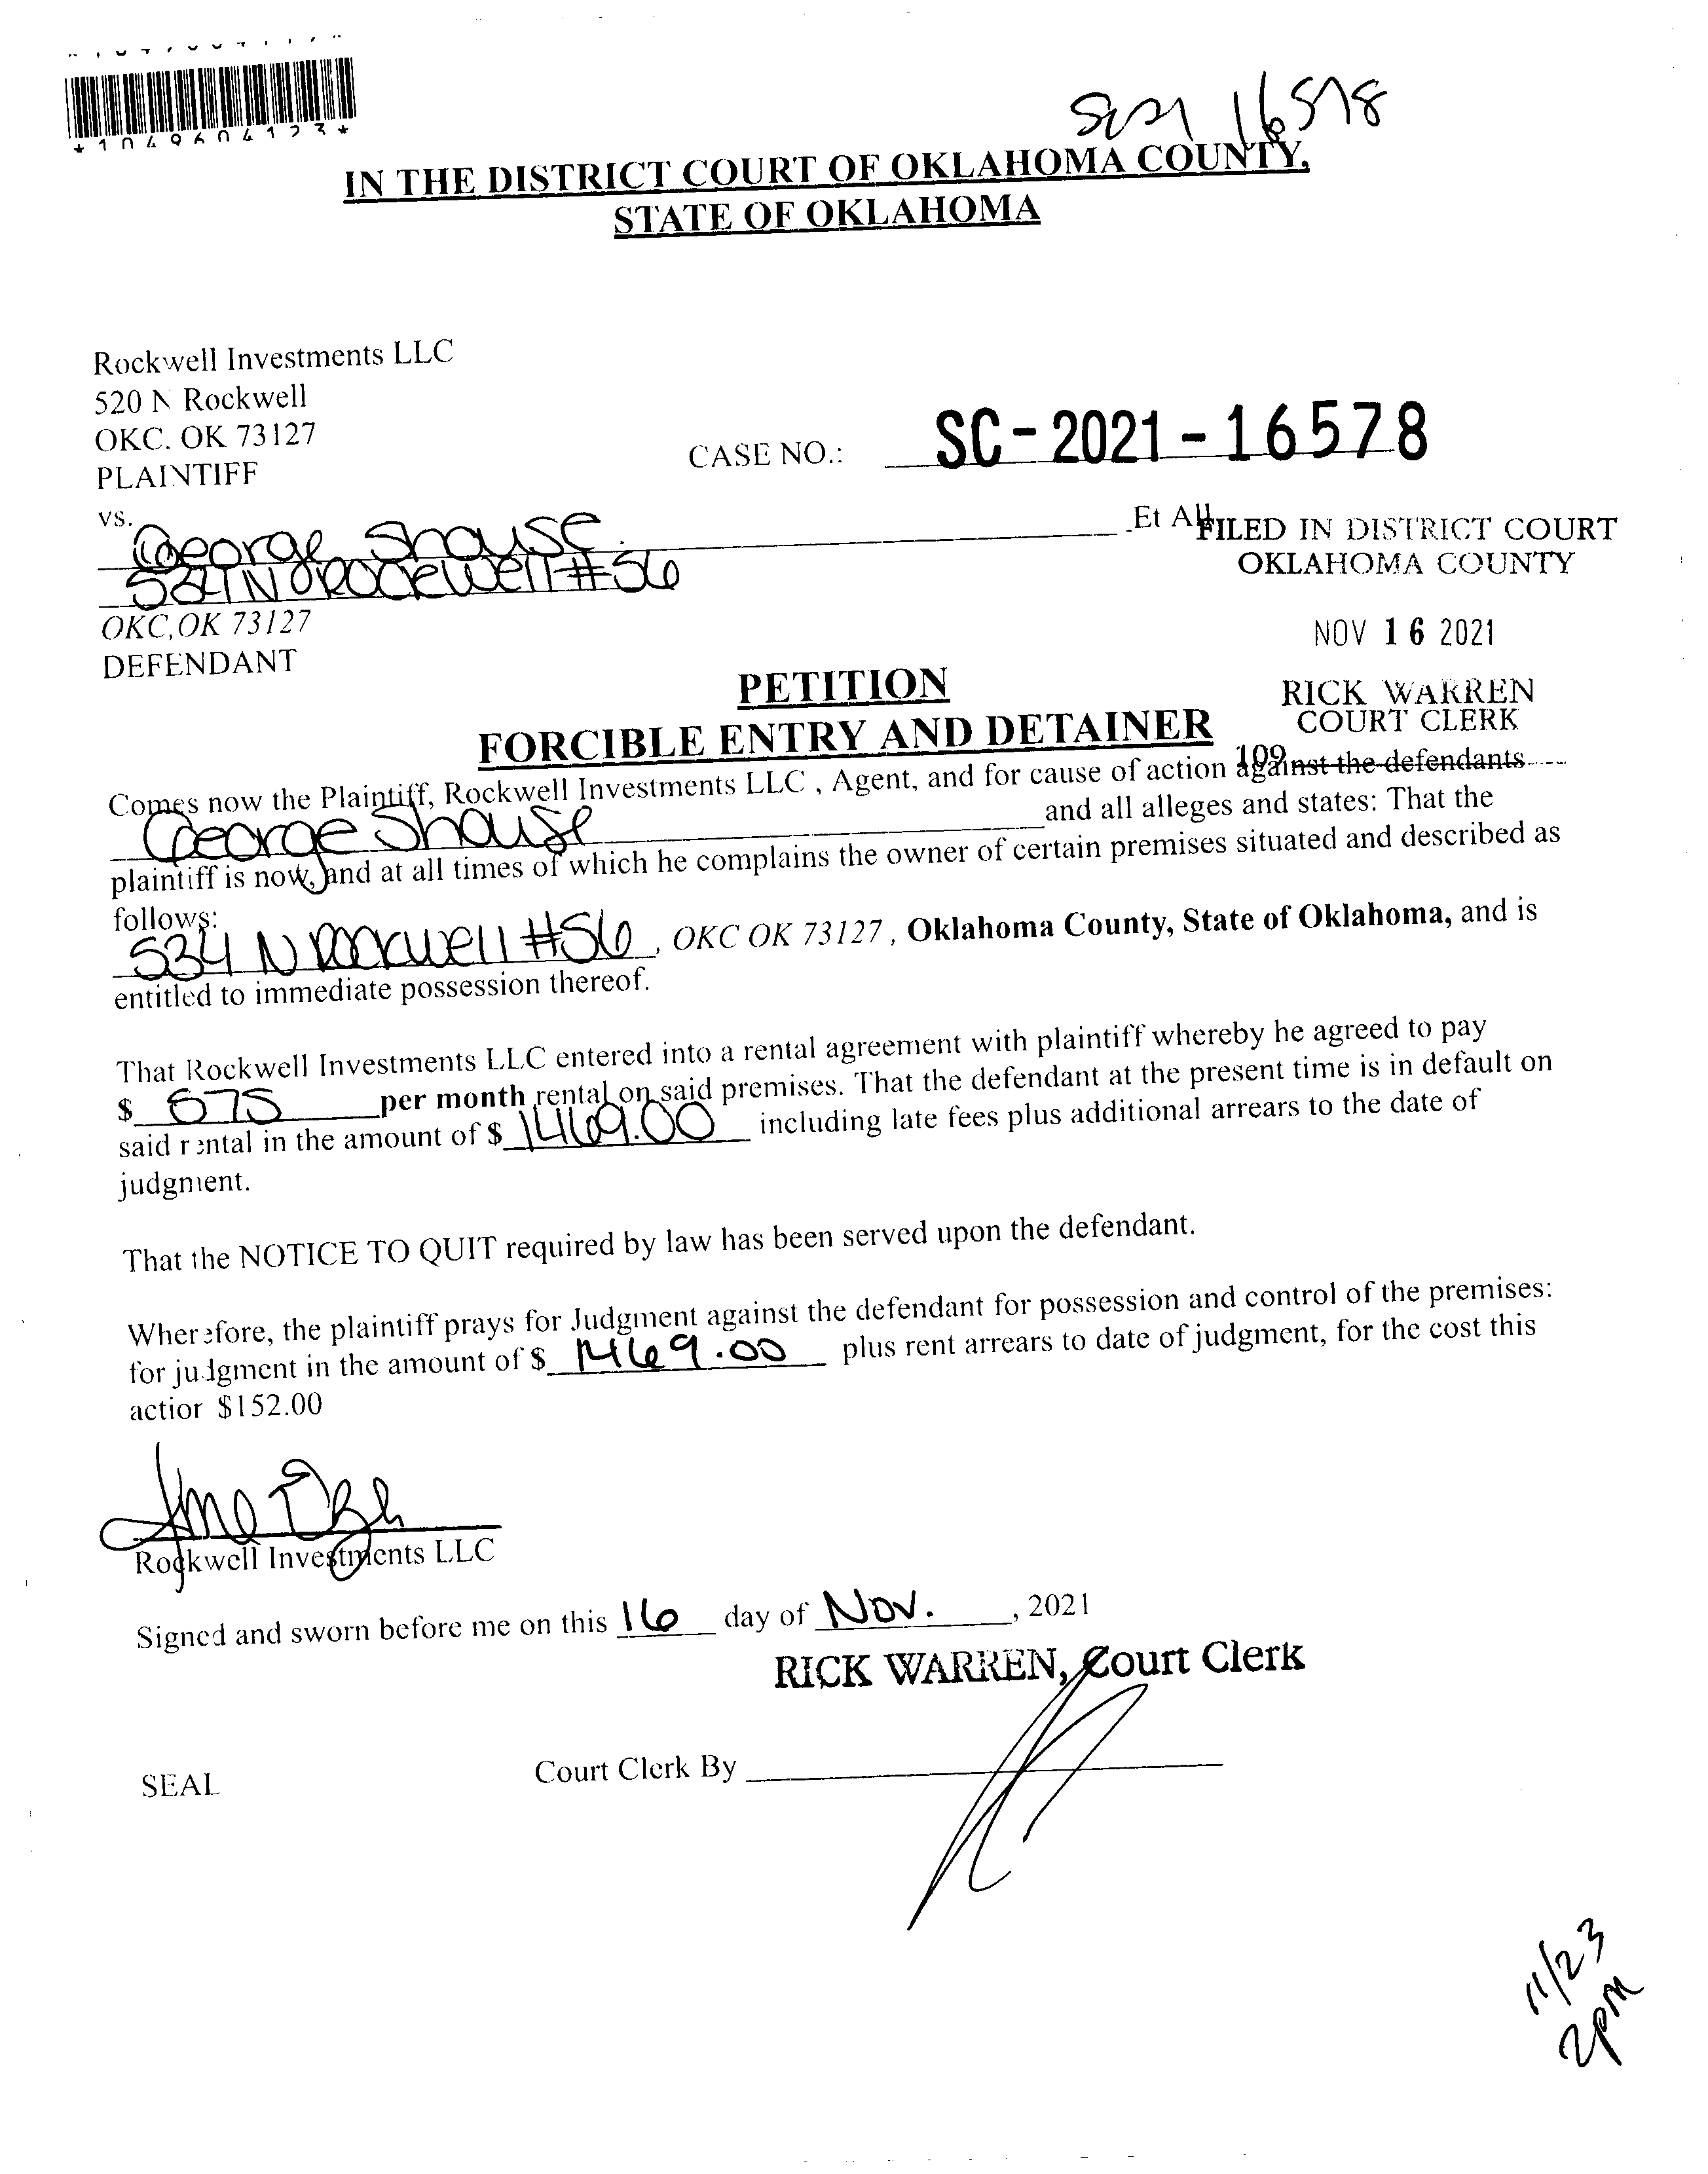 *1049604123*
SC21 16578
IN THE DISTRICT COURT OF OKLAHOMA COUNTY,
STATE OF OKLAHOMA
Rockwell Investments LLC
520 N Rockwell
OKC. OK 73127
PLAINTIFF
CASE NO.: SC-2021-16578
vs.
George Shouse Et All
534 N Rockwell #56
OKC, OK 73127
DEFENDANT
FILED IN DISTRICT COURT
OKLAHOMA COUNTY
NOV 16 2021
RICK WARREN
COURT CLERK
109
PETITION
FORCIBLE ENTRY AND DETAINER
Comes now the Plaintiff, Rockwell Investments LLC , Agent, and for cause of action against the defendants
George Shouse and all alleges and states: That the
plaintiff is now, and at all times of which he complains the owner of certain premises situated and described as
follows:
534 N Rockwell #56 , OKC OK 73127 , Oklahoma County, State of Oklahoma, and is
entitled to immediate possession thereof.
That Rockwell Investments LLC entered into a rental agreement with plaintiff whereby he agreed to pay
$ 675 per month rental on said premises. That the defendant at the present time is in default on
said rental in the amount of $ 1469.00 including late fees plus additional arrears to the date of
judgment.
That the NOTICE TO QUIT required by law has been served upon the defendant.
Wherefore, the plaintiff prays for Judgment against the defendant for possession and control of the premises:
for judgment in the amount of $ 1469.00 plus rent arrears to date of judgment, for the cost this
action $152.00
Rockwell Investments LLC
Signed and sworn before me on this 16 day of Nov. , 2021
RICK WARREN, Court Clerk
SEAL
Court Clerk By
11/23
2pm